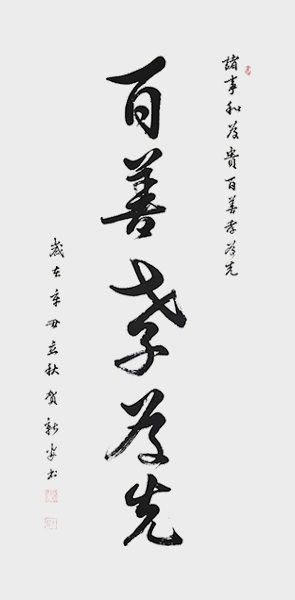 諸事和為貴百善孝為先
百善孝為先
歲在辛丑立秋賀新安書